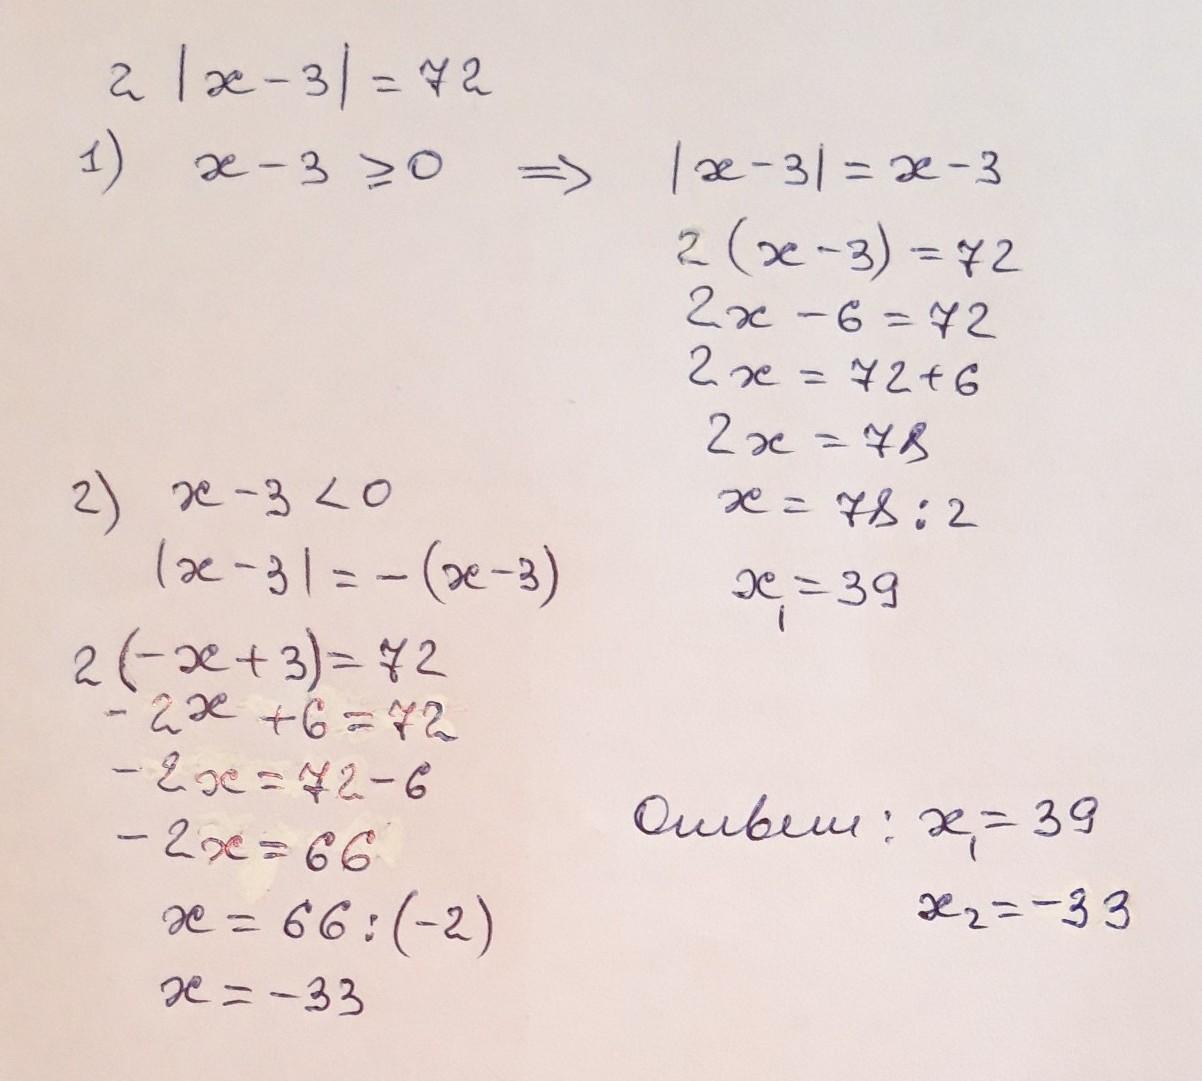 2 |x-3| = 72
1) x-3 ≥ 0 ⇒ |x-3| = x-3
2(x-3) = 72
2x - 6 = 72
2x = 72+6
2x = 78
x = 78 : 2
x₁ = 39
2) x-3 < 0
|x-3| = -(x-3)
2(-x+3) = 72
-2x +6 = 72
-2x = 72-6
-2x = 66
x = 66 : (-2)
x = -33
Ответ: x₁ = 39
x₂ = -33